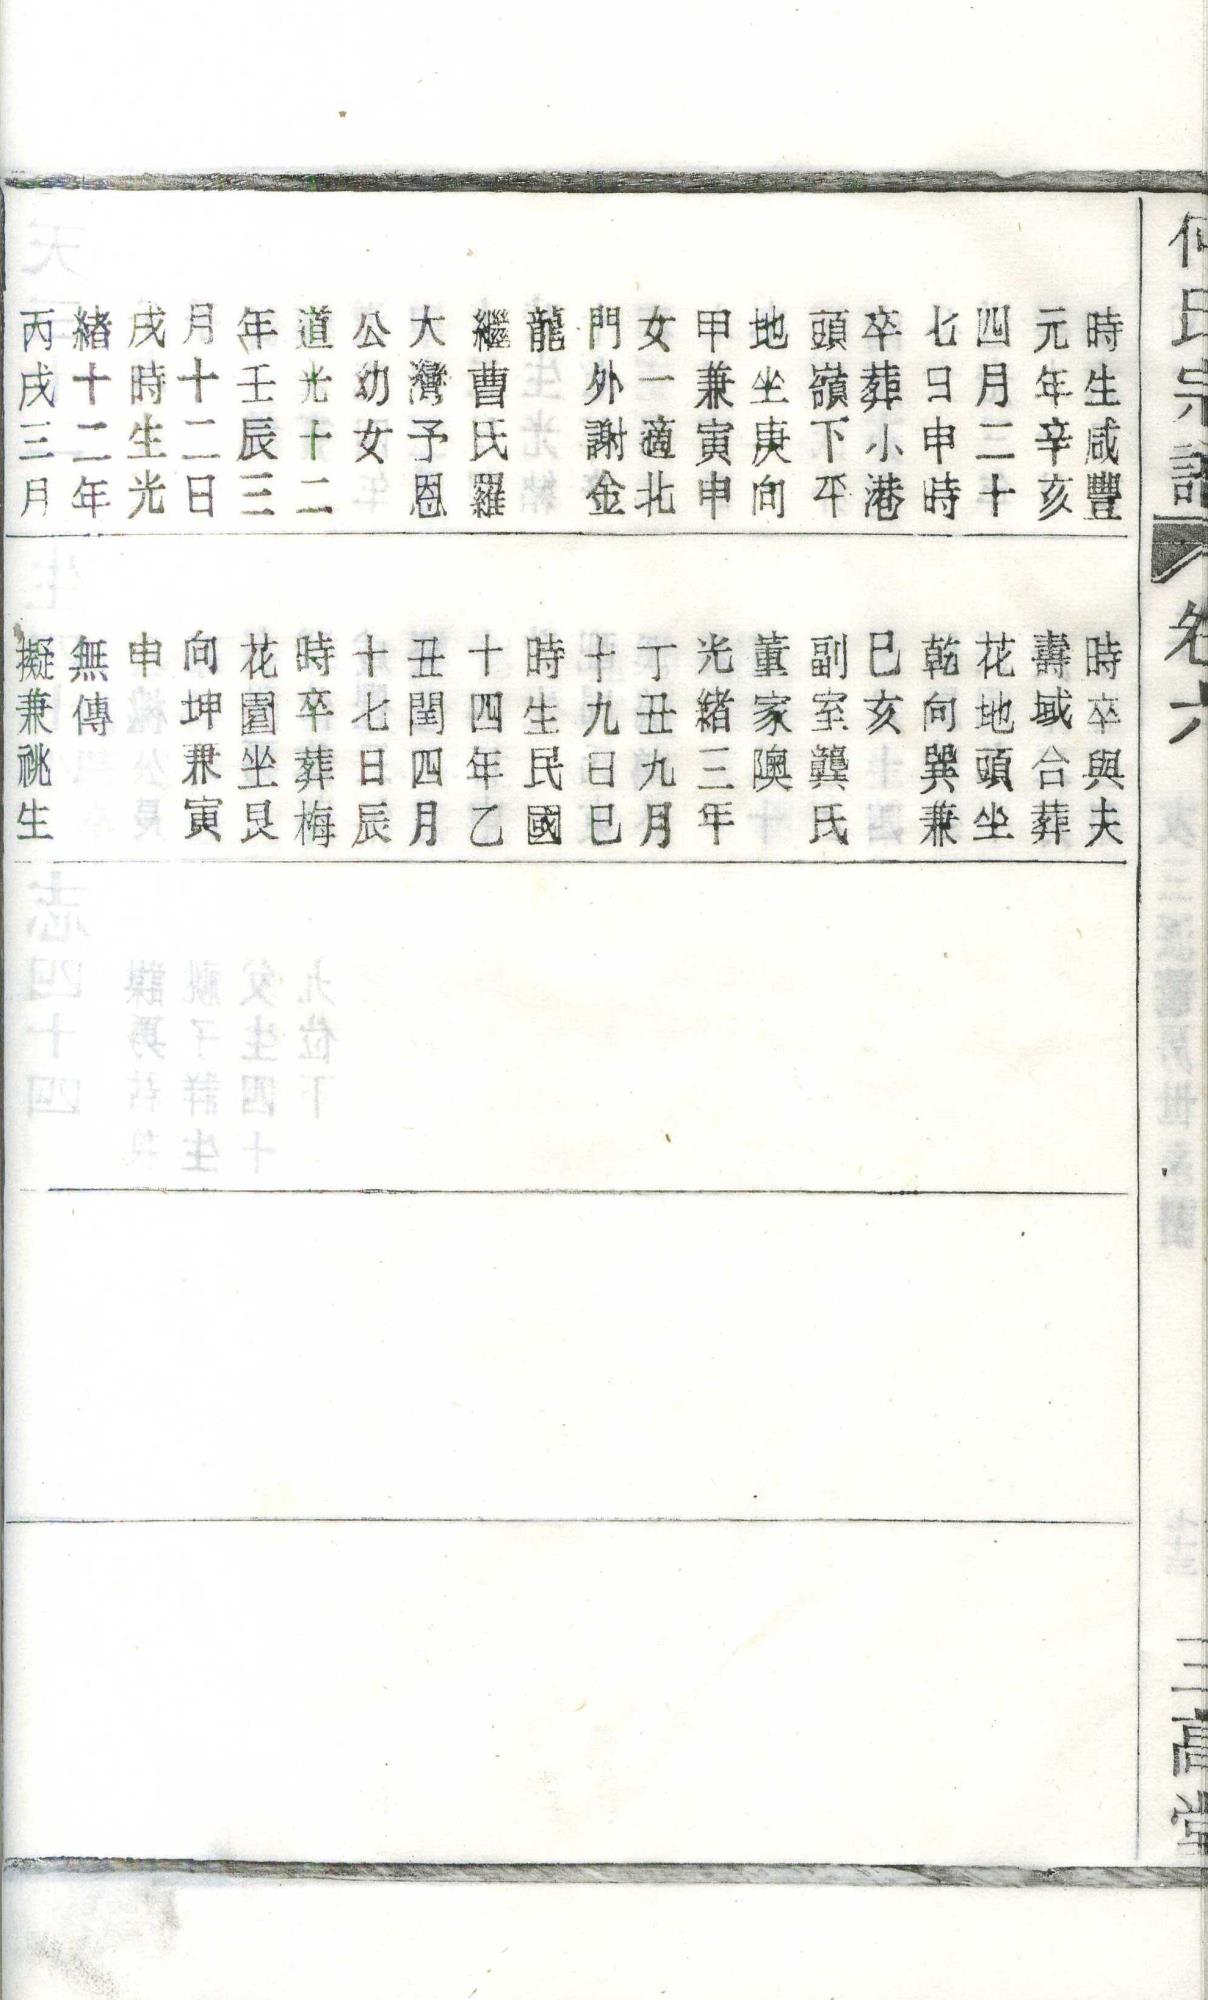 氏宗譜
卷六
三高堂
時生咸豐
元年辛亥
四月二十
七日申時
卒葬小港
頭嶺下平
地坐庚向
甲兼寅申
女一適北
門外謝金
龍
繼曹氏羅
大灣予恩
公幼女
道光十二
年壬辰三
月十二日
戌時生光
緒十二年
丙戌三月
時卒與夫
壽域合葬
花地頭坐
乾向巽兼
巳亥
副室龔氏
董家隩
光緒三年
丁丑九月
十九日巳
時生民國
十四年乙
丑閏四月
十七日辰
時卒葬梅
花園坐艮
向坤兼寅
申
無傳
擬兼祧生